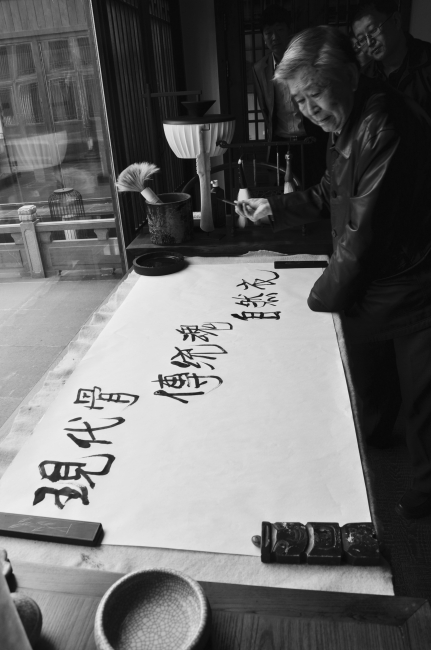 現代骨 傳統魂 自然衣